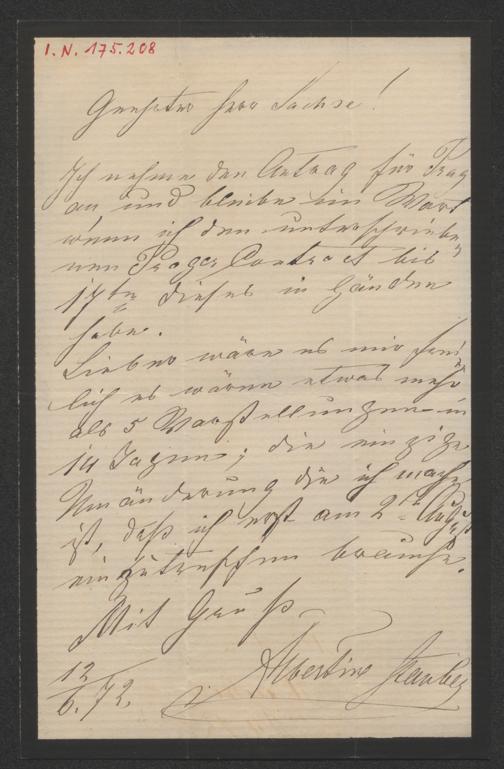 I.N. 175.208
Geehrter Herr Sachse!
Ich nehme den Antrag für Prag
an, und bleibe im Wort
wenn ich den unterschriebe-
nen Prager Contract bis
17ten dieses in Händen
habe.
Lieber wäre es mir frei-
lich es wären etwas mehr
als 5 Vorstellungen in
14 Tagen; die einzige
Umänderung die ich mache
ist, daß ich erst am 2ten August
einzutreffen brauche.
Mit Gruß
12/6. 72.
Albertine